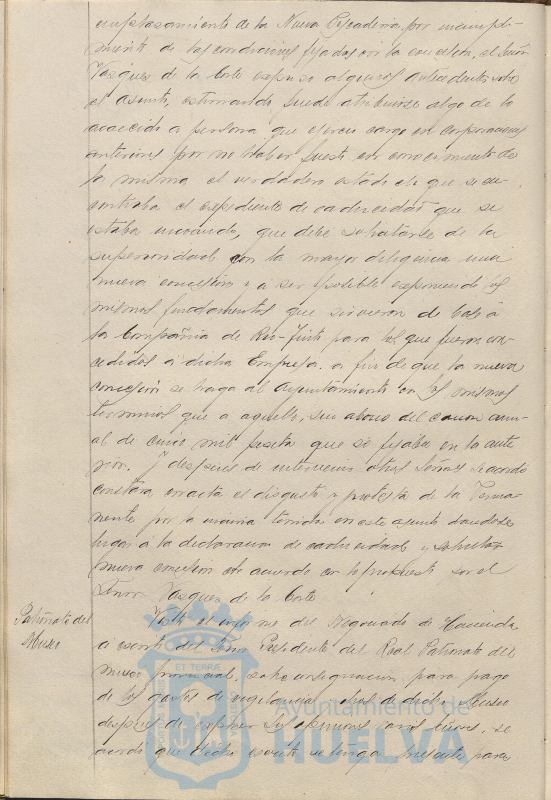 emplazamiento de la Nueva Pescadería por incumpli-
miento de las condiciones fijadas en la concesión, el Señor
Vazquez de la Corte expuso algunos antecedentes sobre
el asunto, estimando puede atribuirse algo de lo
acaecido a persona que ejerció cargo en Corporaciones
anteriores por no haber puesto en conocimiento de
la misma el verdadero estado de que se en-
contraba el expediente de caducidad que se
estaba incoando, que debe solicitarse de la
superioridad con la mayor diligencia una
nueva concesión y a ser posible exponiendo los
mismos fundamentos que sirvieron de base a
la Compañia de Rio-Tinto para las que fueron con-
cedidas a dicha Empresa a fin de que la nueva
concesión se haga al Ayuntamiento en los mismos
terminos que a aquella, sin abono del canon anu-
al de cinco mil pesetas que se fijaba en la ante-
rior. Y despues de intervenir otros Señores se acordó
constara en acta el disgusto y protesta de la Perma-
nente por la incuria tenida en este asunto dandose
lugar a la declaracion de caducidad y solicitar
nueva concesión de acuerdo con lo propuesto por el
Señor Vazquez de la Corte
Patronato del
Museo
Visto el informe del Negociado de Hacienda
a escrito del Señor Presidente del Real Patronato del
museo provincial, sobre consignacion para pago
de los gastos de vigilancia de dicho Museo
despues de exponer su opinion varios Señores, se
acordó que dicho escrito se tenga presente para
ET TERRAE
Ayuntamiento de
HUELVA